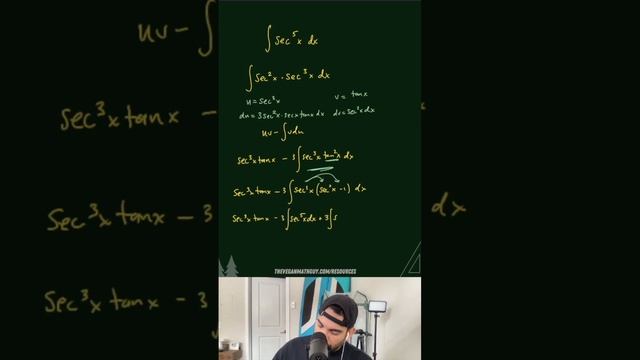 ∫ sec⁵x dx
∫ sec²x · sec³x dx
u = sec³x v = tanx
du = 3sec²x · secx tanx dx dv = sec²x dx
uv - ∫vdu
sec³x tanx - 3∫ sec³x tan²x dx
sec³x tanx - 3∫ sec³x (sec²x - 1) dx
sec³x tanx - 3∫sec⁵x dx + 3∫s
THEVEGANMATHGUY.COM/RESOURCES
uv - ∫
sec³x tanx -
sec³x tanx - 3
sec³x tanx - 3
dx